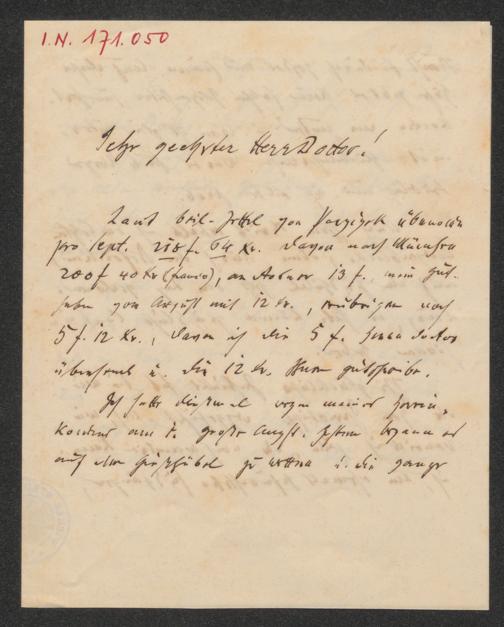 I.N. 171.050
Sehr geehrter Herr Doctor!
Laut beil. Zettel von
pro Sept. 218 f. 64 Kr. Davon nach München
200 f 40 Kr (franco), an 13 f. mein Gut-
haben vom August mit 12 Kr., erübrigen noch
5 f. 12 Kr., davon ich die 5 f. Herrn Doctor
übersende u. die 12 Kr. Ihnen gutschreibe.
Ich hatte diesmal wegen meiner
am 7. große Angst. Gestern begann es
auf dem zu u. die ganze